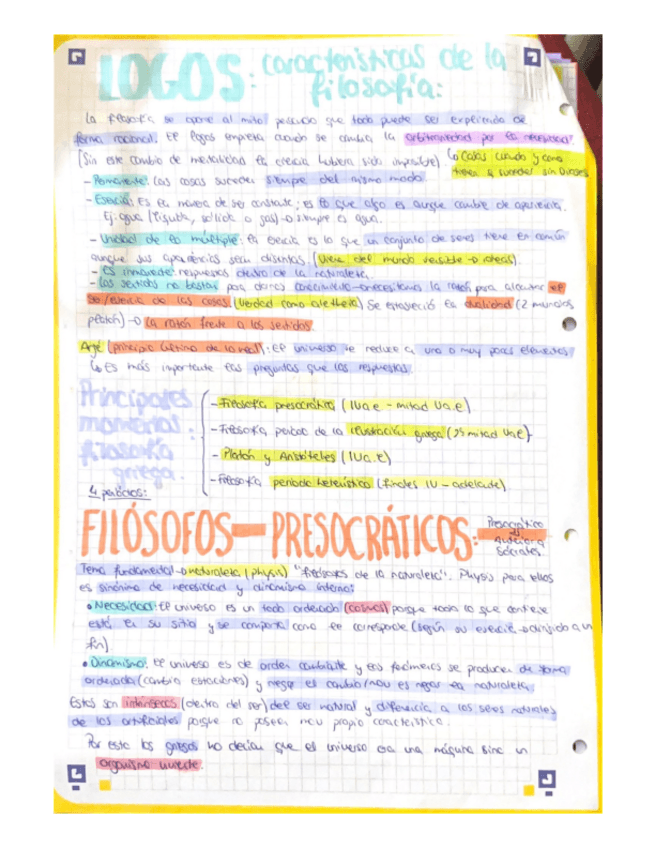 LOGOS: características de la
filosofía:
La filosofía se opone al mito pensando que todo puede ser explicado de
forma racional. El logos empieza cuando se cambia la arbitrariedad por la necesidad.
(Sin este cambio de mentalidad la ciencia hubiera sido imposible) Cosas cuando y como
tienen q suceder sin Dioses
- Permanente: Las cosas suceden siempre del mismo modo
- Esencia: Es la manera de ser constante; es lo que algo es aunque cambie de apariencia.
Ej: agua (líquida, sólida o gas) → siempre es agua.
- Unidad de lo múltiple: la esencia es lo que un conjunto de seres tiene en común
aunque sus apariencias sean distintas. (Viene del mundo visible → ideas).
- Es inmanente: respuestas dentro de la naturaleza
- Los sentidos no bastan para darnos conocimiento → necesitamos la razón para alcanzar el
ser/esencia de las cosas. (Verdad como aletheia) Se estableció la dualidad (2 mundos
platón) → la razón frente a los sentidos.
Arjé (principio último de lo real): el universo se reduce a uno o muy pocos elementos
↳ Es más importante las preguntas que las respuestas.
Principales
momentos:
filosofía
griega.
4 periodos:
- Filosofía presocrática (IV a.e - mitad V a.e)
- Filosofía periodo de la ilustración griega (2ª mitad V a.e)
- Platón y Aristóteles (IV a.e)
- Filosofía periodo helenístico (finales IV - adelante)
FILÓSOFOS PRESOCRÁTICOS: Presocrático
=
Anterior a
Sócrates.
Tema fundamental → naturaleza (physis) "filósofos de la naturaleza". Physis para ellos
es sinónimo de necesidad y dinamismo interno:
• Necesidad: El universo es un todo ordenado (cosmos) porque todo lo que contiene
está en su sitio y se comporta como le corresponde (según su esencia → dirigido a un
fin)
• Dinamismo: El universo es de orden cambiante y los fenómenos se producen de forma
ordenada (cambio estaciones) y negar el cambio/mov es negar la naturaleza.
Estos son intrínsecos (dentro del ser) del ser natural y diferencia a los seres naturales
de los artificiales porque no poseen mov propio característico.
Por esto los griegos no decían que el universo era una máquina sino un
organismo viviente.